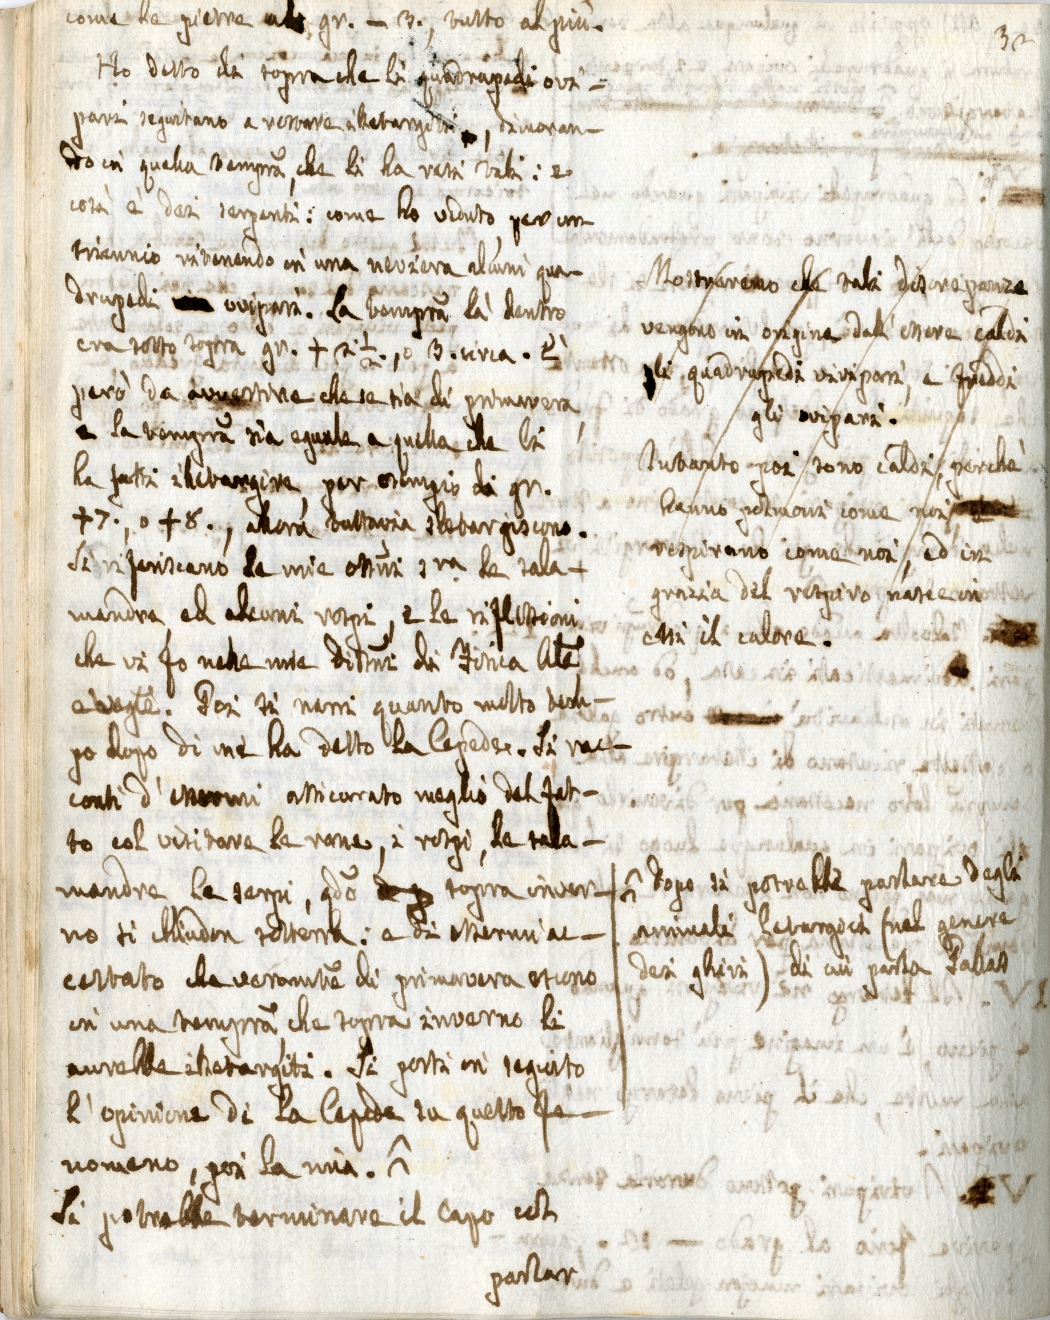 32
come le pietre al gr. — 3., tutto al più.
Ho detto di sopra che li quadrupedi ovi-
pari seguitano a restare iletargiti, dimoran-
do in quella tempra, che li ha resi tali: e
così è dei serpenti: come ho veduto per un
triennio ritenendo in una neviera alcuni qua-
drupedi ovipari. La tempra là dentro
era sotto sopra gr. + 2 1/2., o 3. circa. È
però da avvertire che se sia di primavera,
e la tempra sia eguale a quella che li
ha fatti iletargire, per esempio di gr.
+7., o +8., allora tuttavia sletargiscono.
Si riferiscano le mie ossni sra le sala-
mandre ed alcuni rospi, e le riflessioni
che vi fo nelle mie dissni di Fisica Ale
e Vegle. Poi si narri quanto molto tem-
po dopo di me ha detto La Cepede. Si rac-
conti d'essermi assicurato meglio del fat-
to col visitare le rane, i rospi, le sala-
mandre le serpi, qdo sopra inver-
no si chiudon sotterra: e di essermi ac-
certato che veramte di primavera escono
in una tempra che sopra inverno li
avrebbe iletargiti. Si porti in seguito
l'opinione di La Cepede su questo fe-
nomeno, poi la mia. ^
Si potrebbe terminare il Capo col
parlar
Mostreremo che tali discrepanze
vengono in origine dall'essere caldi
li quadrupedi vivipari, e freddi
gli ovipari.
Intanto poi sono caldi, perchè
hanno polmoni come noi
respirano come noi, ed in
grazia del respiro nasce in
essi il calore.
^ Dopo si potrebbe parlare degli
animali letargici (nel genere
dei ghiri) di cui parla Pallas